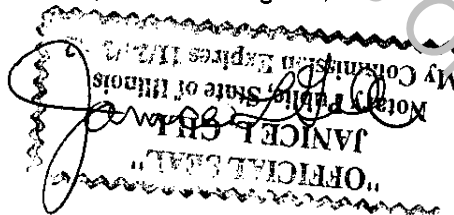 "OFFICIAL SEAL"
JANICE L. GILL
Notary Public, State of Illinois
My Commission Expires